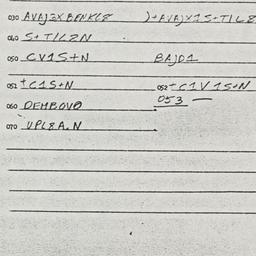 030 AVAJ3XBENKL8 )+AVAJX1S+TIL8
040 S+TIL8N
050 CV1S+N BAJD1
052 +C1S+N 052+C1V1S+N
060 DEMBOVO 053 —
070 UPL8A.N